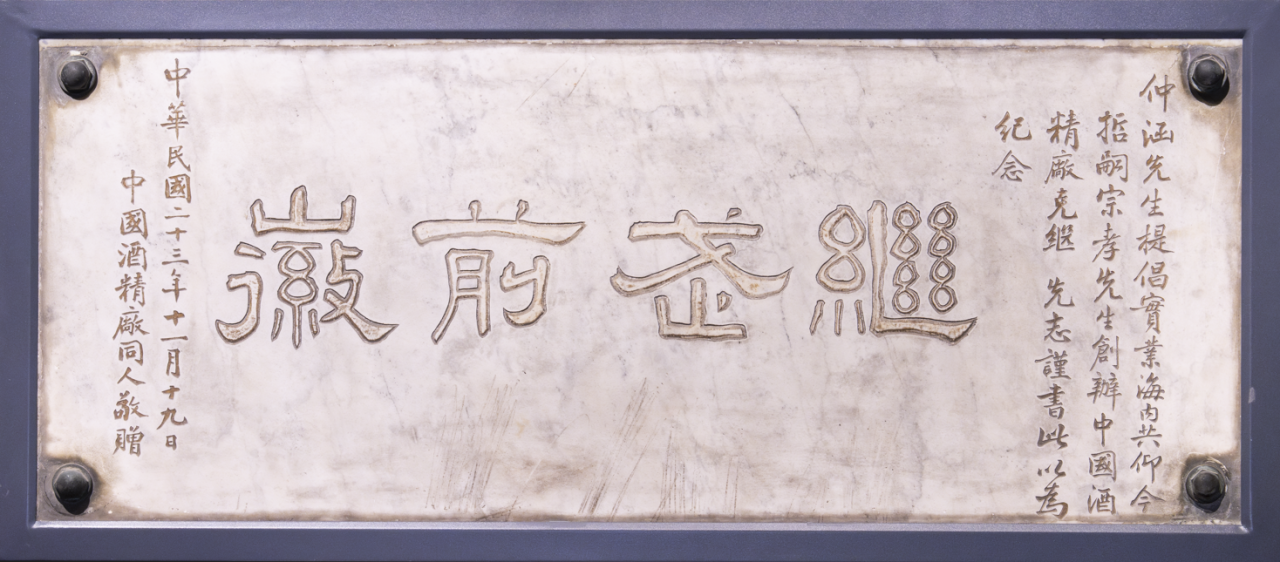 仲涵先生提倡實業海内共仰今
哲嗣宗孝先生創辦中國酒
精廠克繼 先志謹書此以為
紀念
繼武前徽
中華民國二十三年十一月十九日
中國酒精廠同人敬贈